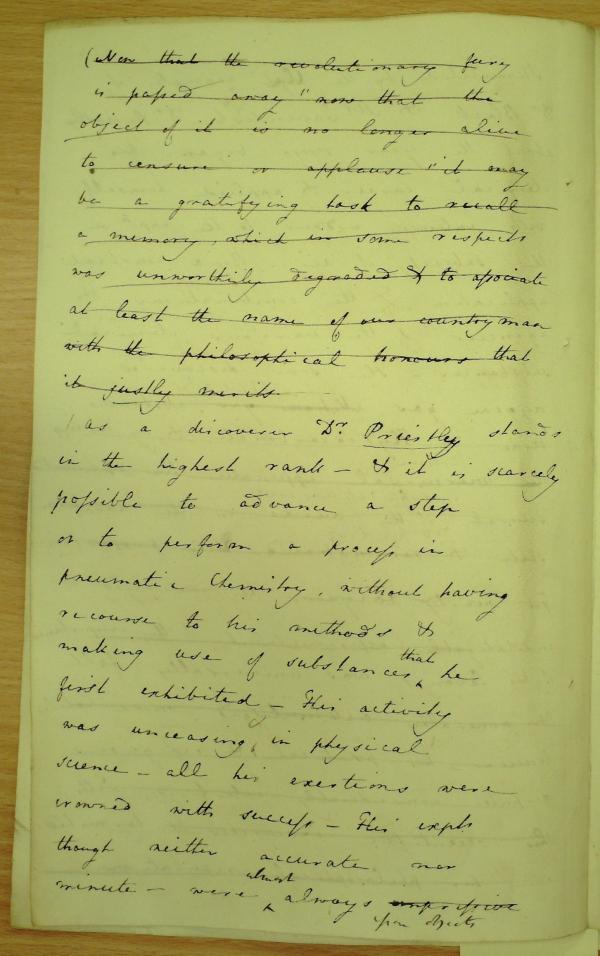 (Now that the revolutionary fury
is passed away "now that the
object of it is no longer alive
to censure or applause" it may
be a gratifying task to recall
a memory, which in some respects
was unworthily degraded & to associate
at least the name of our countryman
with the philosophical honours that
it justly merits.
As a discoverer Dr Priestley stands
in the highest rank – & it is scarcely
possible to advance a step
or to perform a process in
pneumatic Chemistry, without having
recourse to his methods &
making use of substances that he
first exhibited – His activity
was unceasing, in physical
science – all his exertions were
crowned with success – His expts
though neither accurate nor
minute – were almost always
upon objects